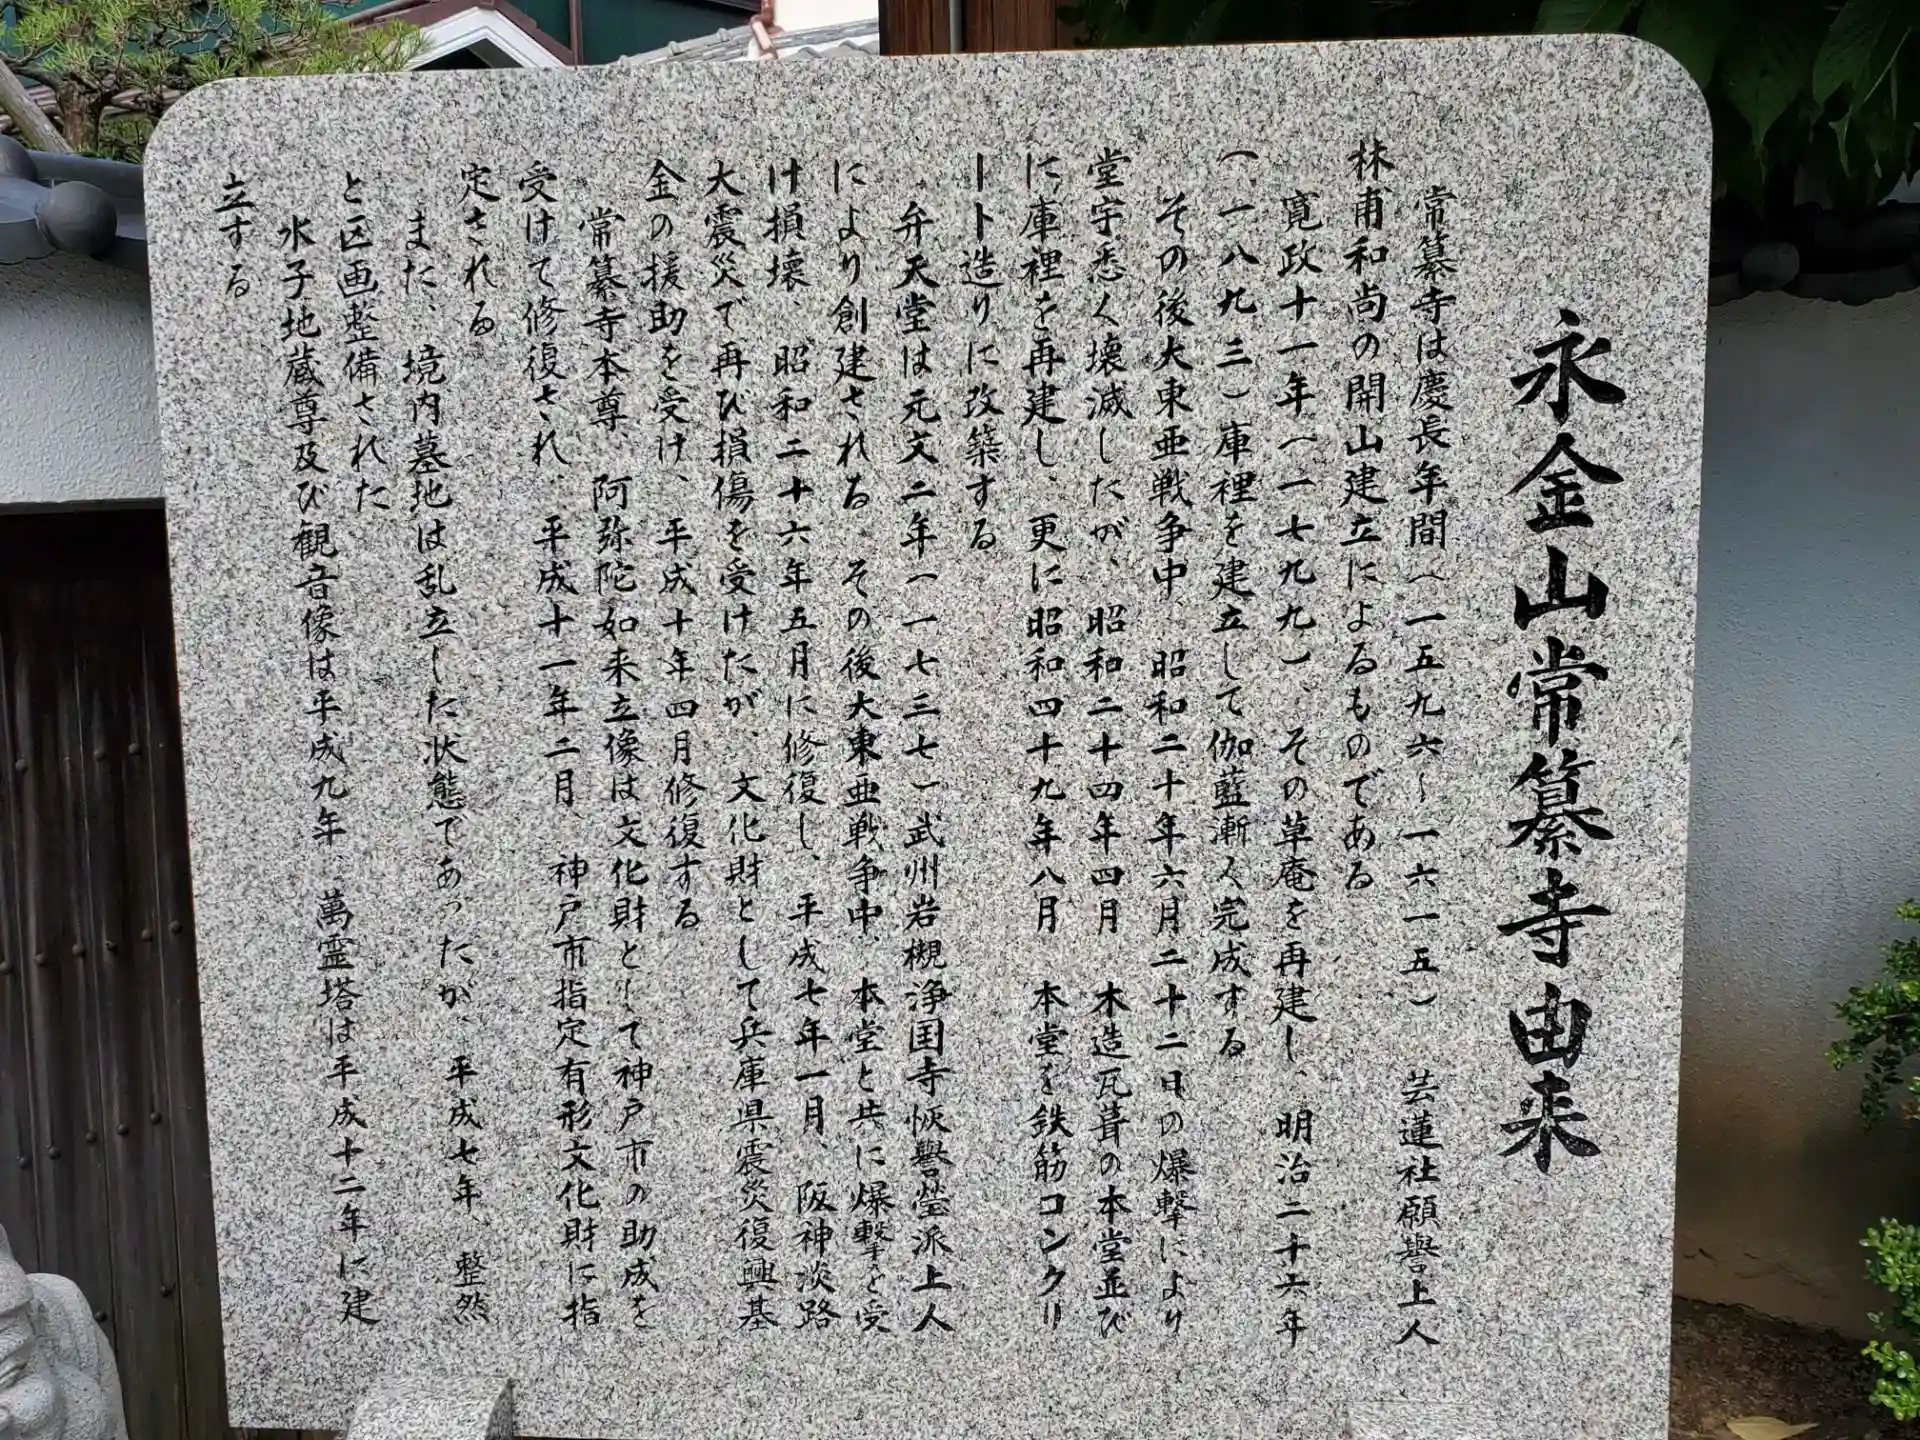 永金山常纂寺由来
常纂寺は慶長年間(一五九六〜一六一五) 芸蓮社願譽上人
林甫和尚の開山建立によるものである
寛政十一年(一七九九)、その草庵を再建し、明治二十六年
(一八九三)庫裡を建立して伽藍漸く完成する
その後大東亜戦争中、昭和二十年六月二十二日の爆撃により
堂宇悉く壊滅したが、昭和二十四年四月 木造瓦葺の本堂並び
に庫裡を再建し、更に昭和四十九年八月 本堂を鉄筋コンクリ
ート造りに改築する
弁天堂は元文二年(一七三七)武州岩槻浄国寺恢譽瑩派上人
により創建される、その後大東亜戦争中、本堂と共に爆撃を受
け損壊、昭和二十六年五月に修復し、平成七年一月 阪神淡路
大震災で再び損傷を受けたが、文化財として兵庫県震災復興基
金の援助を受け、平成十年四月修復する
常纂寺本尊、阿弥陀如来立像は文化財として神戸市の助成を
受けて修復され、平成十一年二月、神戸市指定有形文化財に指
定される
また、境内墓地は乱立した状態であったが、平成七年、整然
と区画整備された
水子地蔵尊及び観音像は平成九年、萬霊塔は平成十二年に建
立する